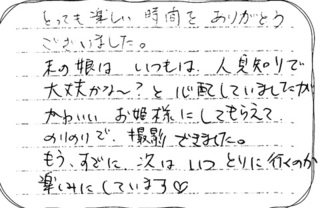 とっても楽しい時間をありがとう
ございました。
末の娘は いつもは、人見知りで
大丈夫かな〜?と心配していましたが
かわいい お姫様に してもらえて
のりのりで、撮影できました。
もう、すでに 次は いつ とりに行くのか
楽しみにしています♡